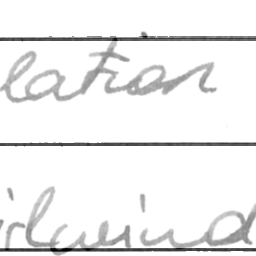 lation
irlwind